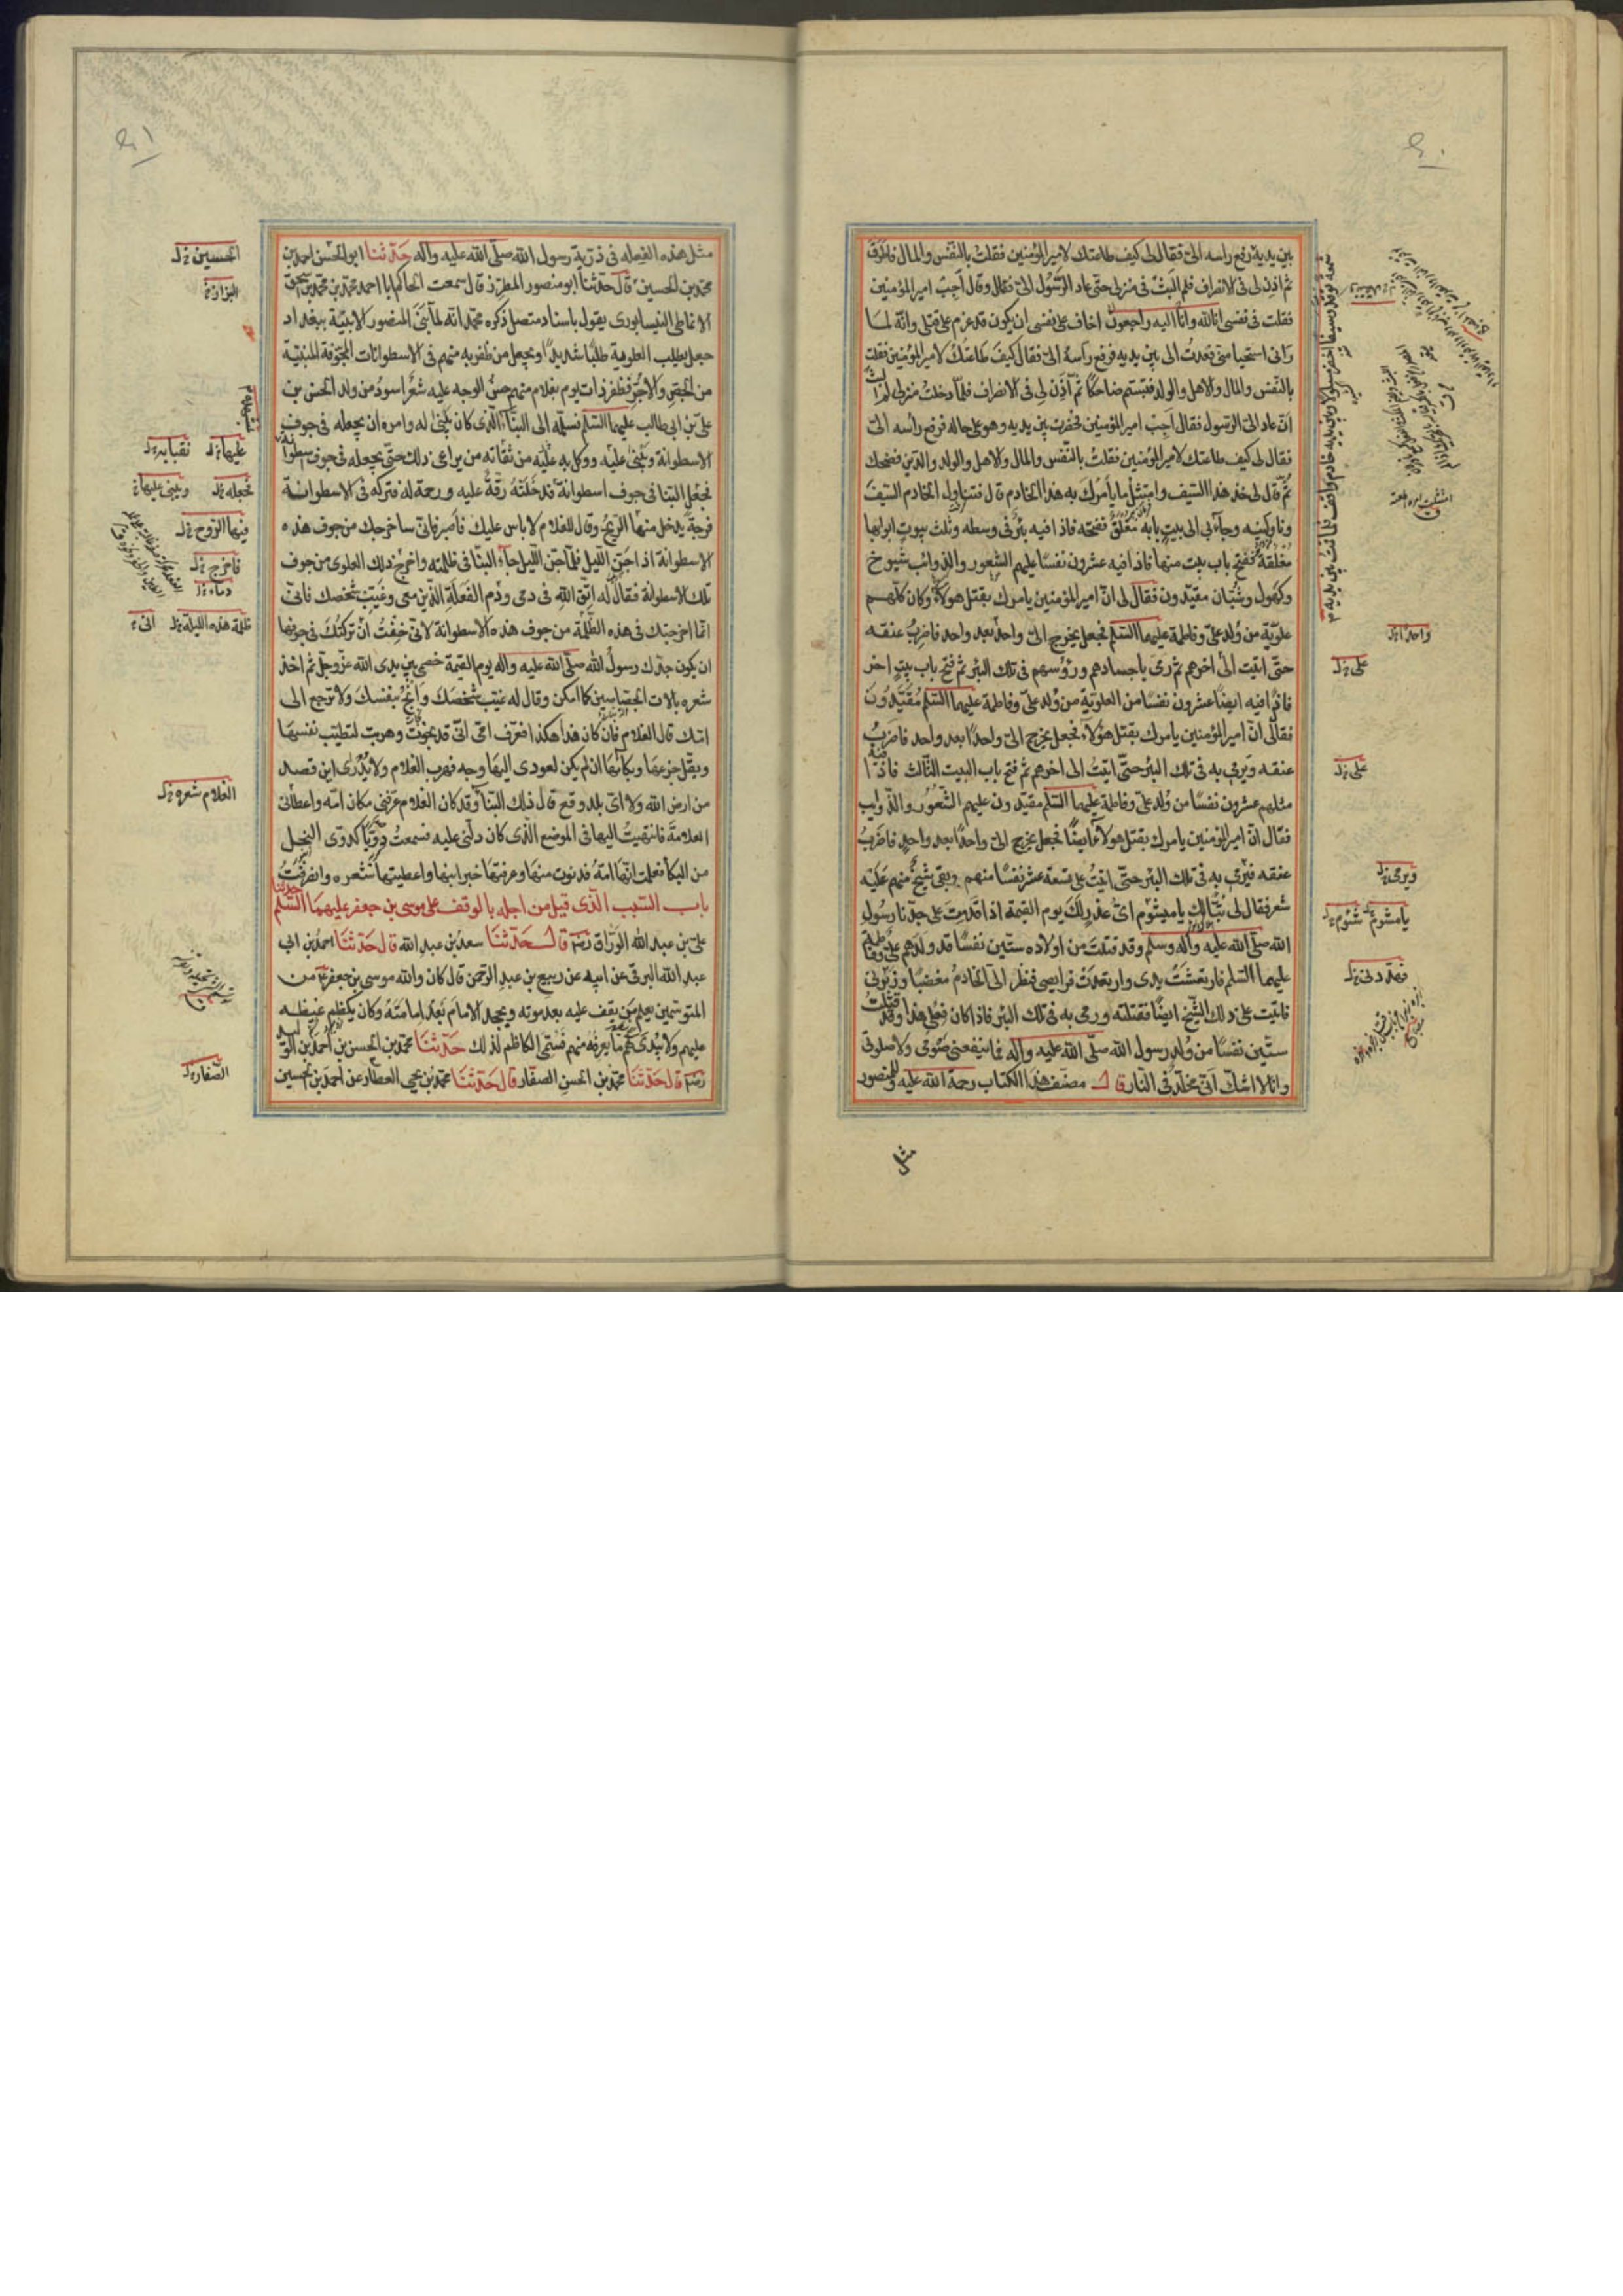 ٤٠
بين يديه رفع راسه الىّ فقال لى كيف طاعتك لامير المؤمنين فقلت بالنفس والمال فاطرق
ثم اذن لى فى الانصراف فلم البث فى منزلى حتى عاد الرسول الىّ فقال وقال اجب امير المؤمنين
فقلت فى نفسى انا لله وانا اليه راجعون اخاف على نفسى ان يكون قد عزم على قتلى وانه لما
رانى استحيا منى فعدت الى بين يديه فرفع راسه الىّ فقال كيف طاعتك لامير المؤمنين فقلت
بالنفس والمال والاهل والولد فتبسم ضاحكا ثم اذن لى فى الانصراف فلما دخلت منزلى لم البث
ان عاد الىّ الرسول فقال اجب امير المؤمنين فحضرت بين يديه وهو على حاله فرفع راسه الىّ
فقال لى كيف طاعتك لامير المؤمنين فقلت بالنفس والمال والاهل والولد والدين فضحك
ثم قال لى خذ هذا السيف وامتثل ما يامرك به هذا الخادم قال فتناول الخادم السيف
وناولنيه وجاءبى الى بيت بابه مغلق ففتحه فاذا فيه بئر فى وسطه وثلث بيوت ابوابها
مغلقة ففتح باب بيت منها فاذا فيه عشرون نفسا عليهم الشعور والذوائب شيوخ
وكهول وشبان مقيدون فقال لى ان امير المؤمنين يامرك بقتل هولاء وكان كلهم
علوية من ولد على وفاطمة عليهما السلم فجعل يخرج الىّ واحدا بعد واحد فاضرب عنقه
حتى اتيت الى اخرهم ثم رمى باجسادهم ورؤسهم فى تلك البئر ثم فتح باب بيت اخر
فاذا فيه ايضا عشرون نفسا من العلوية من ولد على وفاطمة عليهما السلم مقيدون
فقال لى ان امير المؤمنين يامرك بقتل هؤلاء فجعل يخرج الىّ واحدا بعد واحد فاضرب
عنقه ويرمى به فى تلك البئر حتى اتيت الى اخرهم ثم فتح باب البيت الثالث فاذا فيه
مثلهم عشرون نفسا من ولد على وفاطمة عليهما السلم مقيدون عليهم الشعور والذوايب
فقال ان امير المؤمنين يامرك بقتل هولاء ايضا فجعل يخرج الىّ واحدا بعد واحد فاضرب
عنقه فيرمى به فى تلك البئر حتى اتيت على تسعة عشر نفسا منهم وبقى شيخ منهم عليه
شعر فقال لى تبا لك يا ميشوم اىّ عذر لك يوم القيمة اذا قدمت على جدنا رسول
الله صلى الله عليه وآله وسلم وقد قتلت من اولاده ستين نفسا قد ولدهم على وفاطمة
عليهما السلم فارتعشت يدى وارتعدت فرايصى فنظر الىّ الخادم مغضبا وزبرنى
فاتيت على ذلك الشيخ ايضا فقتلته ورمى به فى تلك البئر فاذا كان فعلى هذا وقد قتلت
ستين نفسا من ولد رسول الله صلى الله عليه وآله فما ينفعنى صومى ولا صلوتى
وانا لا اشك انى مخلد فى النار قال مصنف هذا الكتاب رحمة الله عليه وللمنصور
مثل
واحدا
على
على
ويرمى
يا مشوم شئوم
٤١
مثل هذه الفعله فى ذرية رسول الله صلى الله عليه وآله حدثنا ابو الحسن احمد بن
محمد بن الحسين قال حدثنا ابو منصور المطرز قال سمعت الحاكم ابا احمد محمد بن محمد بن اسحق
الانماطى النيسابورى يقول باسناد متصل ذكره محمد انه لما بنى المنصور الابنية ببغداد
جعل يطلب العلوية طلبا شديدا ويجعل من ظفر به منهم فى الاسطوانات المجوفة المبنية
من الجص والاجر فظفر ذات يوم بغلام منهم حسن الوجه عليه شعر اسود من ولد الحسن بن
على بن ابى طالب عليهما السلم فسلمه الى البناء الذى كان يبنى له وامره ان يجعله فى جوف
الاسطوانة ويبنى عليه ووكل به عليه من ثقاته من يراعى ذلك حتى يجعله فى جوف اسطوانة
فجعل البنا فى جوف اسطوانة قد خلته رقة عليه ورحمة له فترك له فى الاسطوانة
فرجة يدخل منها الريح وقال للغلام لا باس عليك فاصبر فانى ساخرجك من جوف هذه
الاسطوانة اذا جن الليل فلما جن الليل جاء البنا فى ظلمته واخرج ذلك العلوى من جوف
تلك الاسطوانة فقال له اتق الله فى دمى ودم الفعلة الذين معى وغيب شخصك فانى
انما اخرجتك فى هذه الظلمة من جوف هذه الاسطوانة لانى خفت ان تركتك فى جوفها
ان يكون جدك رسول الله صلى الله عليه وآله يوم القيمة خصمى بين يدى الله عز وجل ثم اخذ
شعره بالات الجصاصين كما امكن وقال له غيب شخصك وانج بنفسك ولا ترجع الى
امك قال الغلام فان كان هذا هكذا فعرف امى انى قد نجوت وهربت لتطيب نفسها
ويقل جزعها وبكائها ان لم يكن لعودى اليها وجه فهرب الغلام ولا يدرى اين قصد
من ارض الله ولا اى بلد وقع قال ذلك البناء وقد كان الغلام عرفنى مكان امه واعطانى
العلامة فانتهيت اليها فى الموضع الذى كان دلنى عليه فسمعت دويا كدوى النحل
من البكا فعلمت انها امه فدنوت منها وعرفتها خبر ابنها واعطيتها شعره وانصرفت
باب السبب الذى قيل من اجله بالوقف على موسى بن جعفر عليهما السلم حدثنا
على بن عبد الله الوراق رضه قال حدثنا سعد بن عبد الله قال حدثنا احمد بن ابى
عبد الله البرقى عن ابيه عن ربيع بن عبد الرحمن قال كان والله موسى بن جعفر ع من
المتوسمين يعلم من يقف عليه بعد موته ويجحد الامام بعد امامته وكان يكظم غيظه
عليهم ولا يبدى لهم ما يعرفه منهم فسمى الكاظم لذلك حدثنا محمد بن الحسن بن احمد بن الوليد
رضه قال حدثنا محمد بن الحسن الصفار قال حدثنا محمد بن يحيى العطار عن احمد بن الحسين
الحسين
عليها
فجعله ويبنى عليها
فيها الروح
فاخرج
دماء
ظلمة هذه الليلة انى
الغلام شعره
الصفار